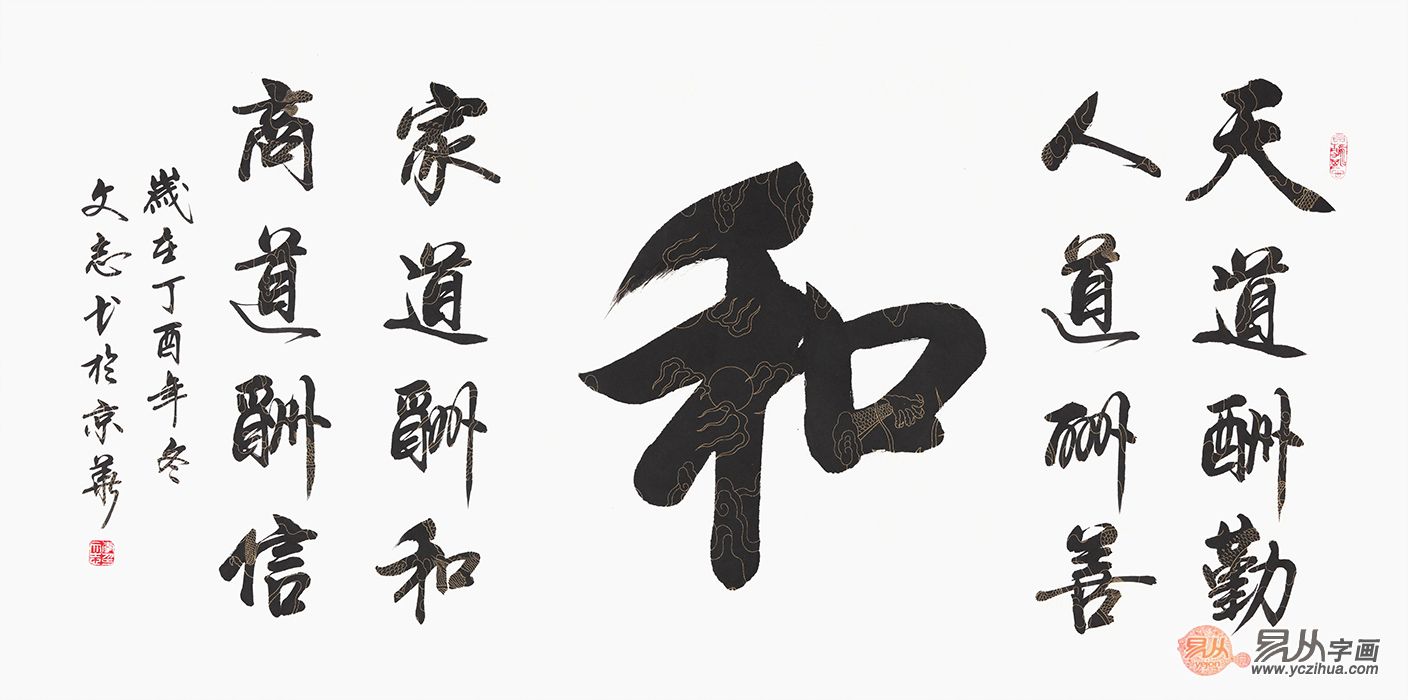 天道酬勤
人道酬善
和
家道酬和
商道酬信
歲在丁酉年冬
文志書於京華
易从
yejon
易从字画
www.yczihua.com